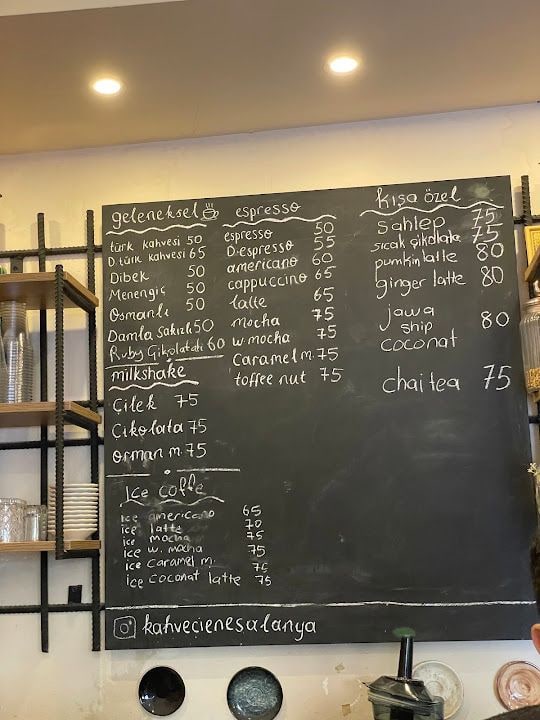 geleneksel
türk kahvesi 50
D. türk kahvesi 65
Dibek 50
Menengiç 50
Osmanlı 50
Damla Sakızlı 50
Ruby Çikolatalı 60
milkshake
Çilek 75
Çikolata 75
orman m. 75
Ice coffe
ice americano 65
ice latte 70
ice mocha 75
ice w. mocha 75
ice caramel m. 75
ice coconat latte 75
espresso
espresso 50
D.espresso 55
americano 60
cappuccino 65
latte 65
mocha 75
w mocha 75
Caramel m. 75
toffee nut 75
kışa özel
Sahlep 75
sıcak çikolata 75
pumkin latte 80
ginger latte 80
jawa
ship 80
coconat
chai tea 75
kahvecienesalanya